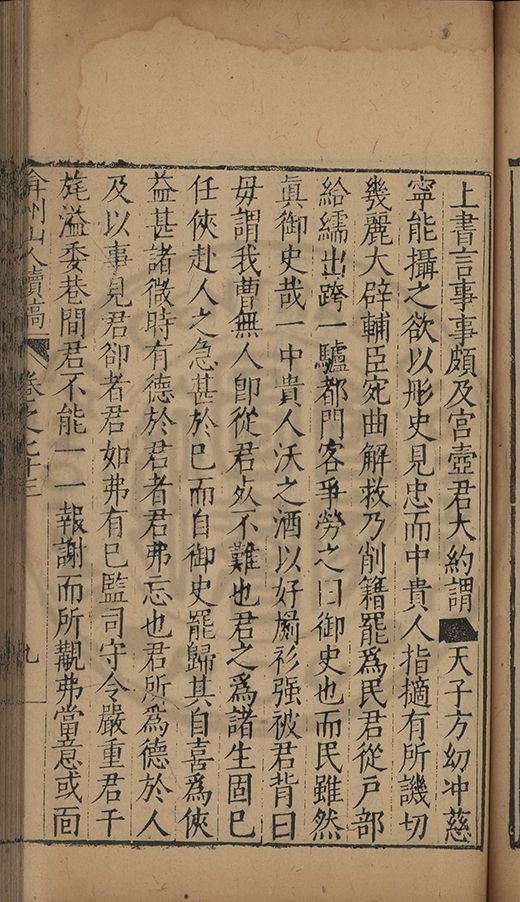 上書言事事頗及宮壼君大約謂天子方幼冲慈
寧能攝之欲以彤史見忠而中貴人指擿有所譏切
幾麗大辟輔臣宛曲解救乃削籍罷爲民君從戶部
給繻出跨一驢都門客爭勞之曰御史也而民雖然
眞御史哉一中貴人沃之酒以好罽衫强被君背曰
毋謂我曹無人卽從君死不難也君之爲諸生固已
任俠赴人之急甚於已而自御史罷歸其自喜爲俠
益甚諸微時有德於君者君弗忘也君所爲德於人
及以事見君卻者君如弗有已監司守令嚴重君干
旄溢委巷間君不能一一報謝而所覯弗當意或面
弇州山人續稿 卷之七十三 九